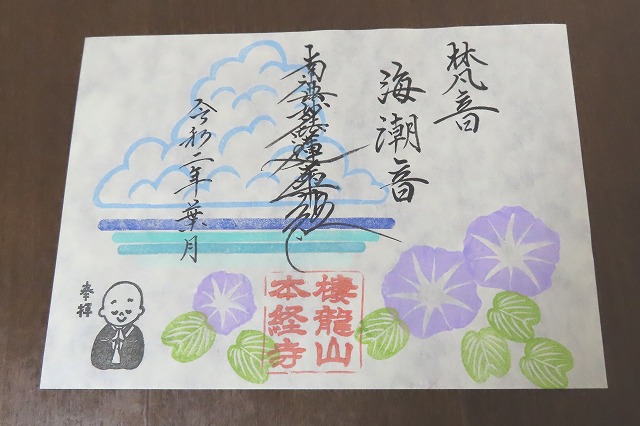 梵音
海潮音
南無妙法蓮華経
令和二年葉月
棲龍山
本経寺
奉拝